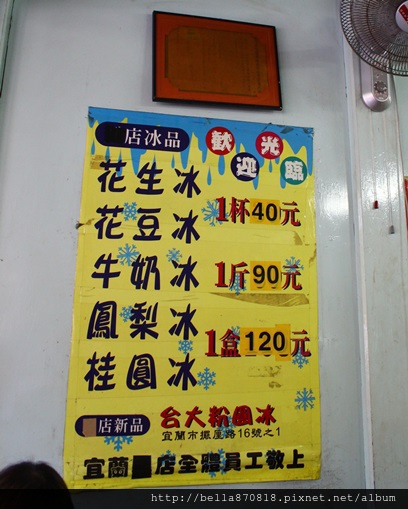 店冰品
歡迎光臨
花生冰
花豆冰
牛奶冰
鳳梨冰
桂圓冰
1杯40元
1斤90元
1盒120元
店新品
台大粉圓冰
宜蘭市振屋路16號之1
宜蘭 店全體員工敬上
http://bella870818.pixnet.net/album